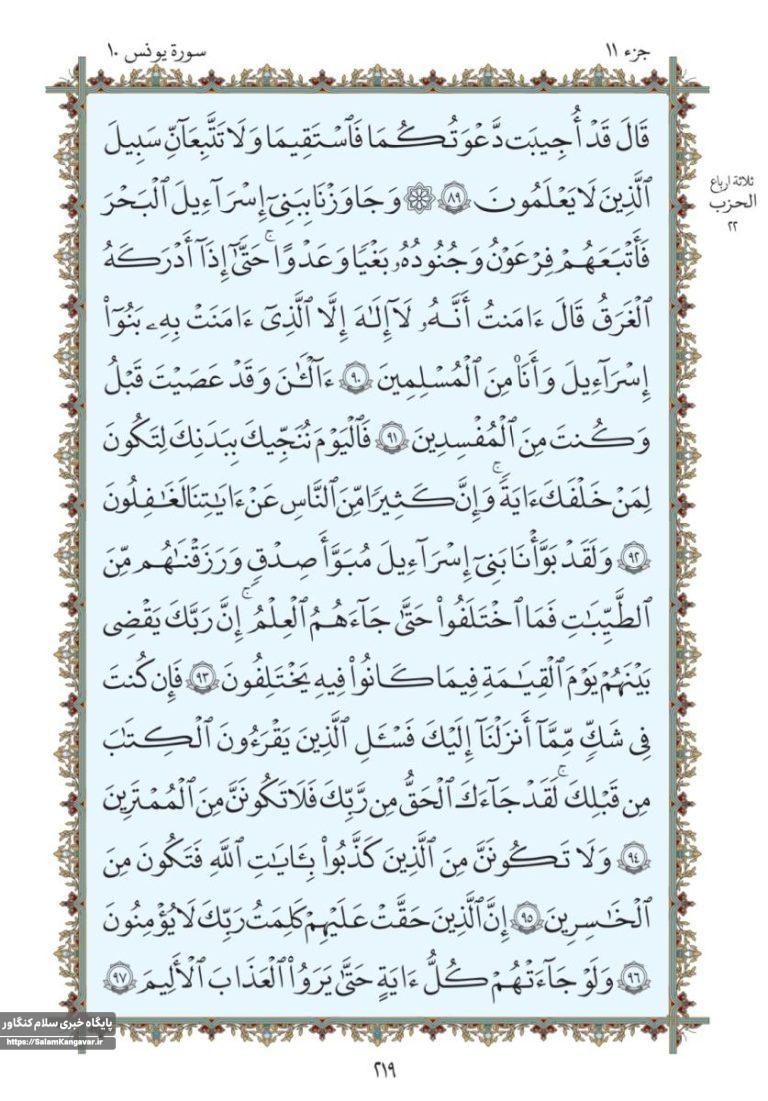 جزء ١١
سورة يونس ١٠
قَالَ قَدْ أُجِيبَت دَّعْوَتُكُمَا فَٱسْتَقِيمَا وَلَا تَتَّبِعَآنِّ سَبِيلَ
ٱلَّذِينَ لَا يَعْلَمُونَ ٨٩ ۞ وَجَاوَزْنَا بِبَنِىٓ إِسْرَآءِيلَ ٱلْبَحْرَ
ثلاثة ارباع
الحزب
٢٢
فَأَتْبَعَهُمْ فِرْعَوْنُ وَجُنُودُهُۥ بَغْيًا وَعَدْوًا ۖ حَتَّىٰٓ إِذَآ أَدْرَكَهُ
ٱلْغَرَقُ قَالَ ءَامَنتُ أَنَّهُۥ لَآ إِلَٰهَ إِلَّا ٱلَّذِىٓ ءَامَنَتْ بِهِۦ بَنُوٓا۟
إِسْرَآءِيلَ وَأَنَا۠ مِنَ ٱلْمُسْلِمِينَ ٩٠ ءَآلْـَٰٔنَ وَقَدْ عَصَيْتَ قَبْلُ
وَكُنتَ مِنَ ٱلْمُفْسِدِينَ ٩١ فَٱلْيَوْمَ نُنَجِّيكَ بِبَدَنِكَ لِتَكُونَ
لِمَنْ خَلْفَكَ ءَايَةً ۚ وَإِنَّ كَثِيرًا مِّنَ ٱلنَّاسِ عَنْ ءَايَٰتِنَا لَغَٰفِلُونَ
٩٢ وَلَقَدْ بَوَّأْنَا بَنِىٓ إِسْرَآءِيلَ مُبَوَّأَ صِدْقٍ وَرَزَقْنَٰهُم مِّنَ
ٱلطَّيِّبَٰتِ فَمَا ٱخْتَلَفُوا۟ حَتَّىٰ جَآءَهُمُ ٱلْعِلْمُ ۚ إِنَّ رَبَّكَ يَقْضِى
بَيْنَهُمْ يَوْمَ ٱلْقِيَٰمَةِ فِيمَا كَانُوا۟ فِيهِ يَخْتَلِفُونَ ٩٣ فَإِن كُنتَ
فِى شَكٍّ مِّمَّآ أَنزَلْنَآ إِلَيْكَ فَسْـَٔلِ ٱلَّذِينَ يَقْرَءُونَ ٱلْكِتَٰبَ
مِن قَبْلِكَ ۚ لَقَدْ جَآءَكَ ٱلْحَقُّ مِن رَّبِّكَ فَلَا تَكُونَنَّ مِنَ ٱلْمُمْتَرِينَ
٩٤ وَلَا تَكُونَنَّ مِنَ ٱلَّذِينَ كَذَّبُوا۟ بِـَٔايَٰتِ ٱللَّهِ فَتَكُونَ مِنَ
ٱلْخَٰسِرِينَ ٩٥ إِنَّ ٱلَّذِينَ حَقَّتْ عَلَيْهِمْ كَلِمَتُ رَبِّكَ لَا يُؤْمِنُونَ
٩٦ وَلَوْ جَآءَتْهُمْ كُلُّ ءَايَةٍ حَتَّىٰ يَرَوُا۟ ٱلْعَذَابَ ٱلْأَلِيمَ ٩٧
پایگاه خبری سلام کنگاور
https://SalamKangavar.ir
٢١٩